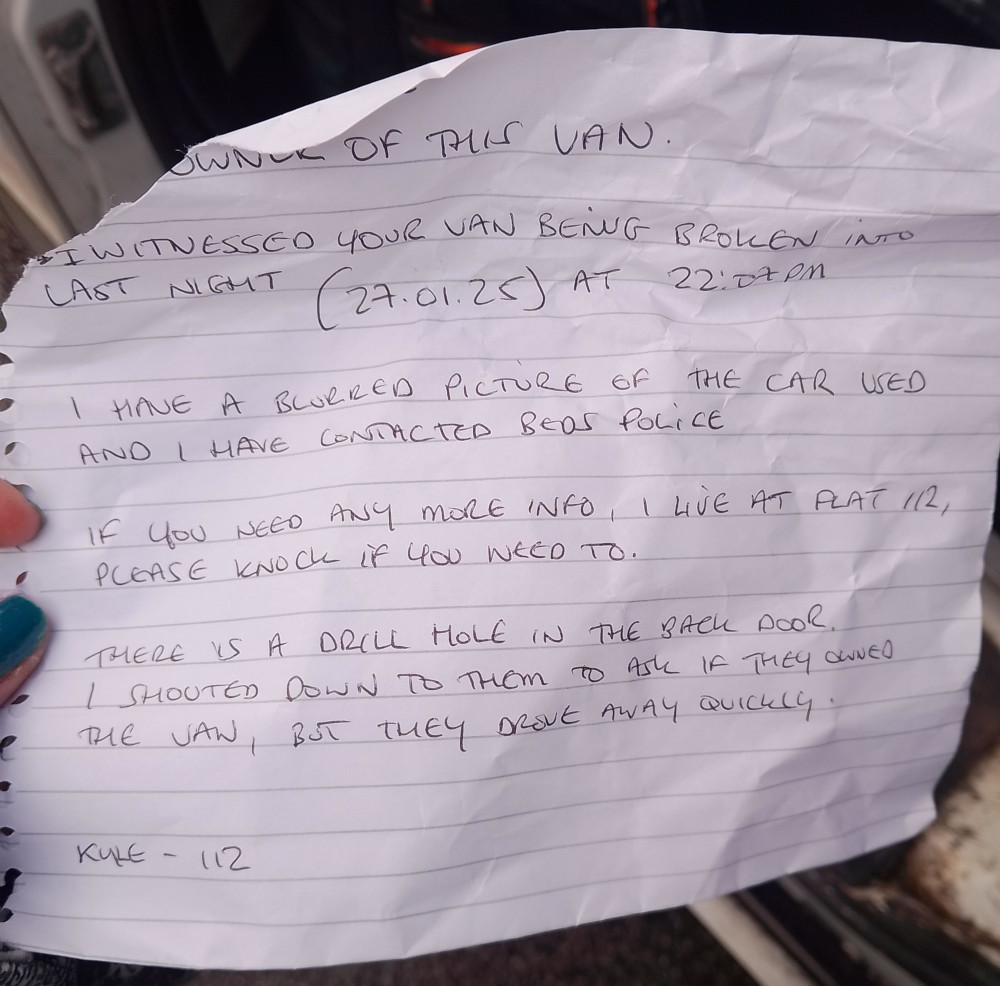 OWNER OF THIS VAN.
I WITNESSED YOUR VAN BEING BROKEN INTO
LAST NIGHT (27.01.25) AT 22:07PM
I HAVE A BLURRED PICTURE OF THE CAR USED
AND I HAVE CONTACTED BEDS POLICE
IF YOU NEED ANY MORE INFO, I LIVE AT FLAT 112,
PLEASE KNOCK IF YOU NEED TO.
THERE IS A DRILL HOLE IN THE BACK DOOR.
I SHOUTED DOWN TO THEM TO ASK IF THEY OWNED
THE VAN, BUT THEY DROVE AWAY QUICKLY.
KYLE - 112